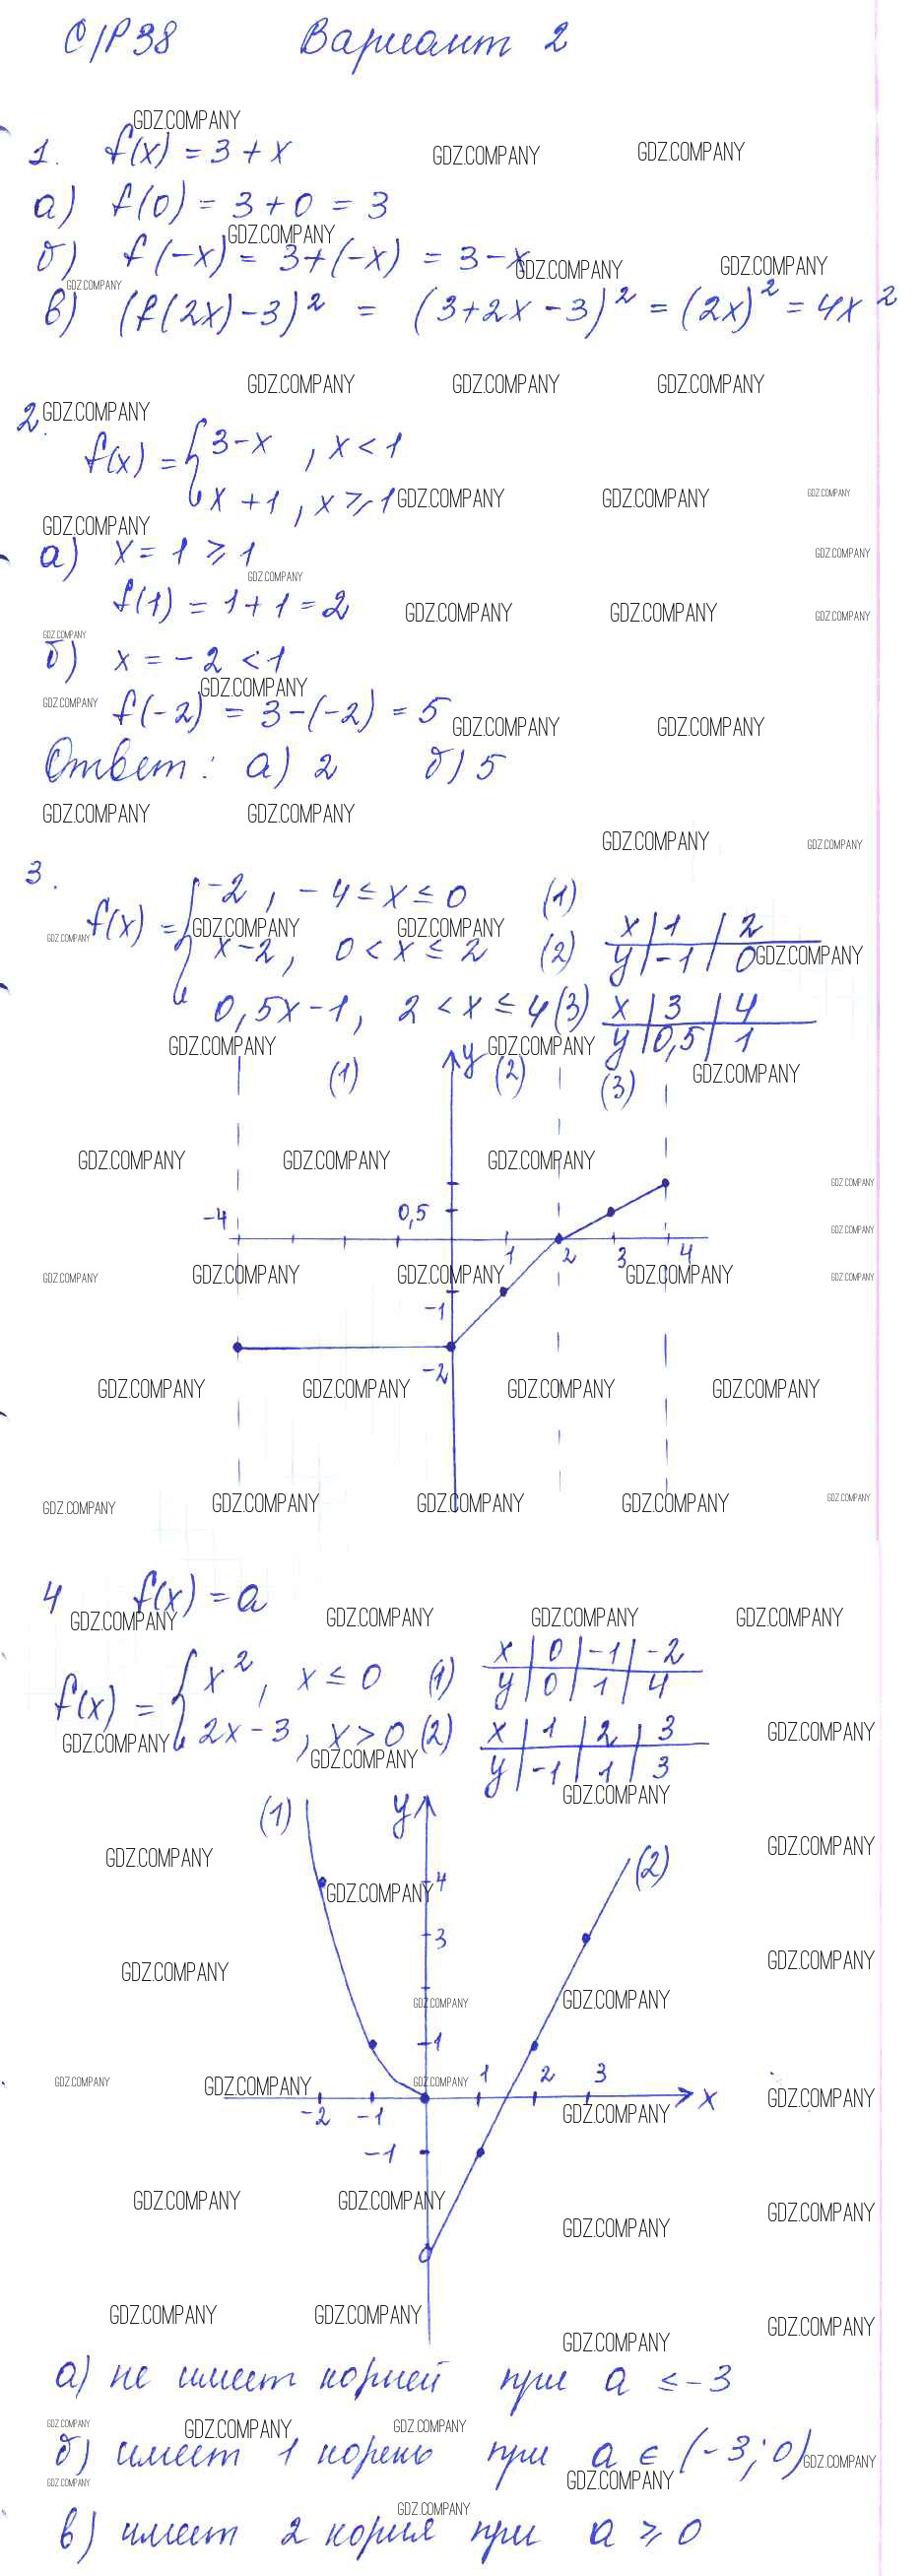 С/Р 38 Вариант 2
1. f(x) = 3 + x
а) f(0) = 3 + 0 = 3
б) f(-x) = 3 + (-x) = 3 - x
в) (f(2x) - 3)² = (3 + 2x - 3)² = (2x)² = 4x²
2. f(x) = { 3 - x, x < 1
x + 1, x ⩾ 1
а) x = 1 ⩾ 1
f(1) = 1 + 1 = 2
б) x = -2 < 1
f(-2) = 3 - (-2) = 5
Ответ: а) 2 б) 5
3. f(x) = { -2, -4 ≤ x ≤ 0 (1)
x - 2, 0 < x ≤ 2 (2) x | 1 | 2
y | -1 | 0
0,5x - 1, 2 < x ≤ 4 (3) x | 3 | 4
y | 0,5 | 1
(1) y (2) (3)
-4 0,5 1 2 3 4
-1
-2
4 f(x) = a
f(x) = { x², x ≤ 0 (1) x | 0 | -1 | -2
y | 0 | 1 | 4
2x - 3, x > 0 (2) x | 1 | 2 | 3
y | -1 | 1 | 3
(1) y (2)
4
3
1
-2 -1 1 2 3 x
-1
а) не имеет корней при a ≤ -3
б) имеет 1 корень при a ∈ (-3; 0)
в) имеет 2 корня при a ⩾ 0
GDZ.COMPANY